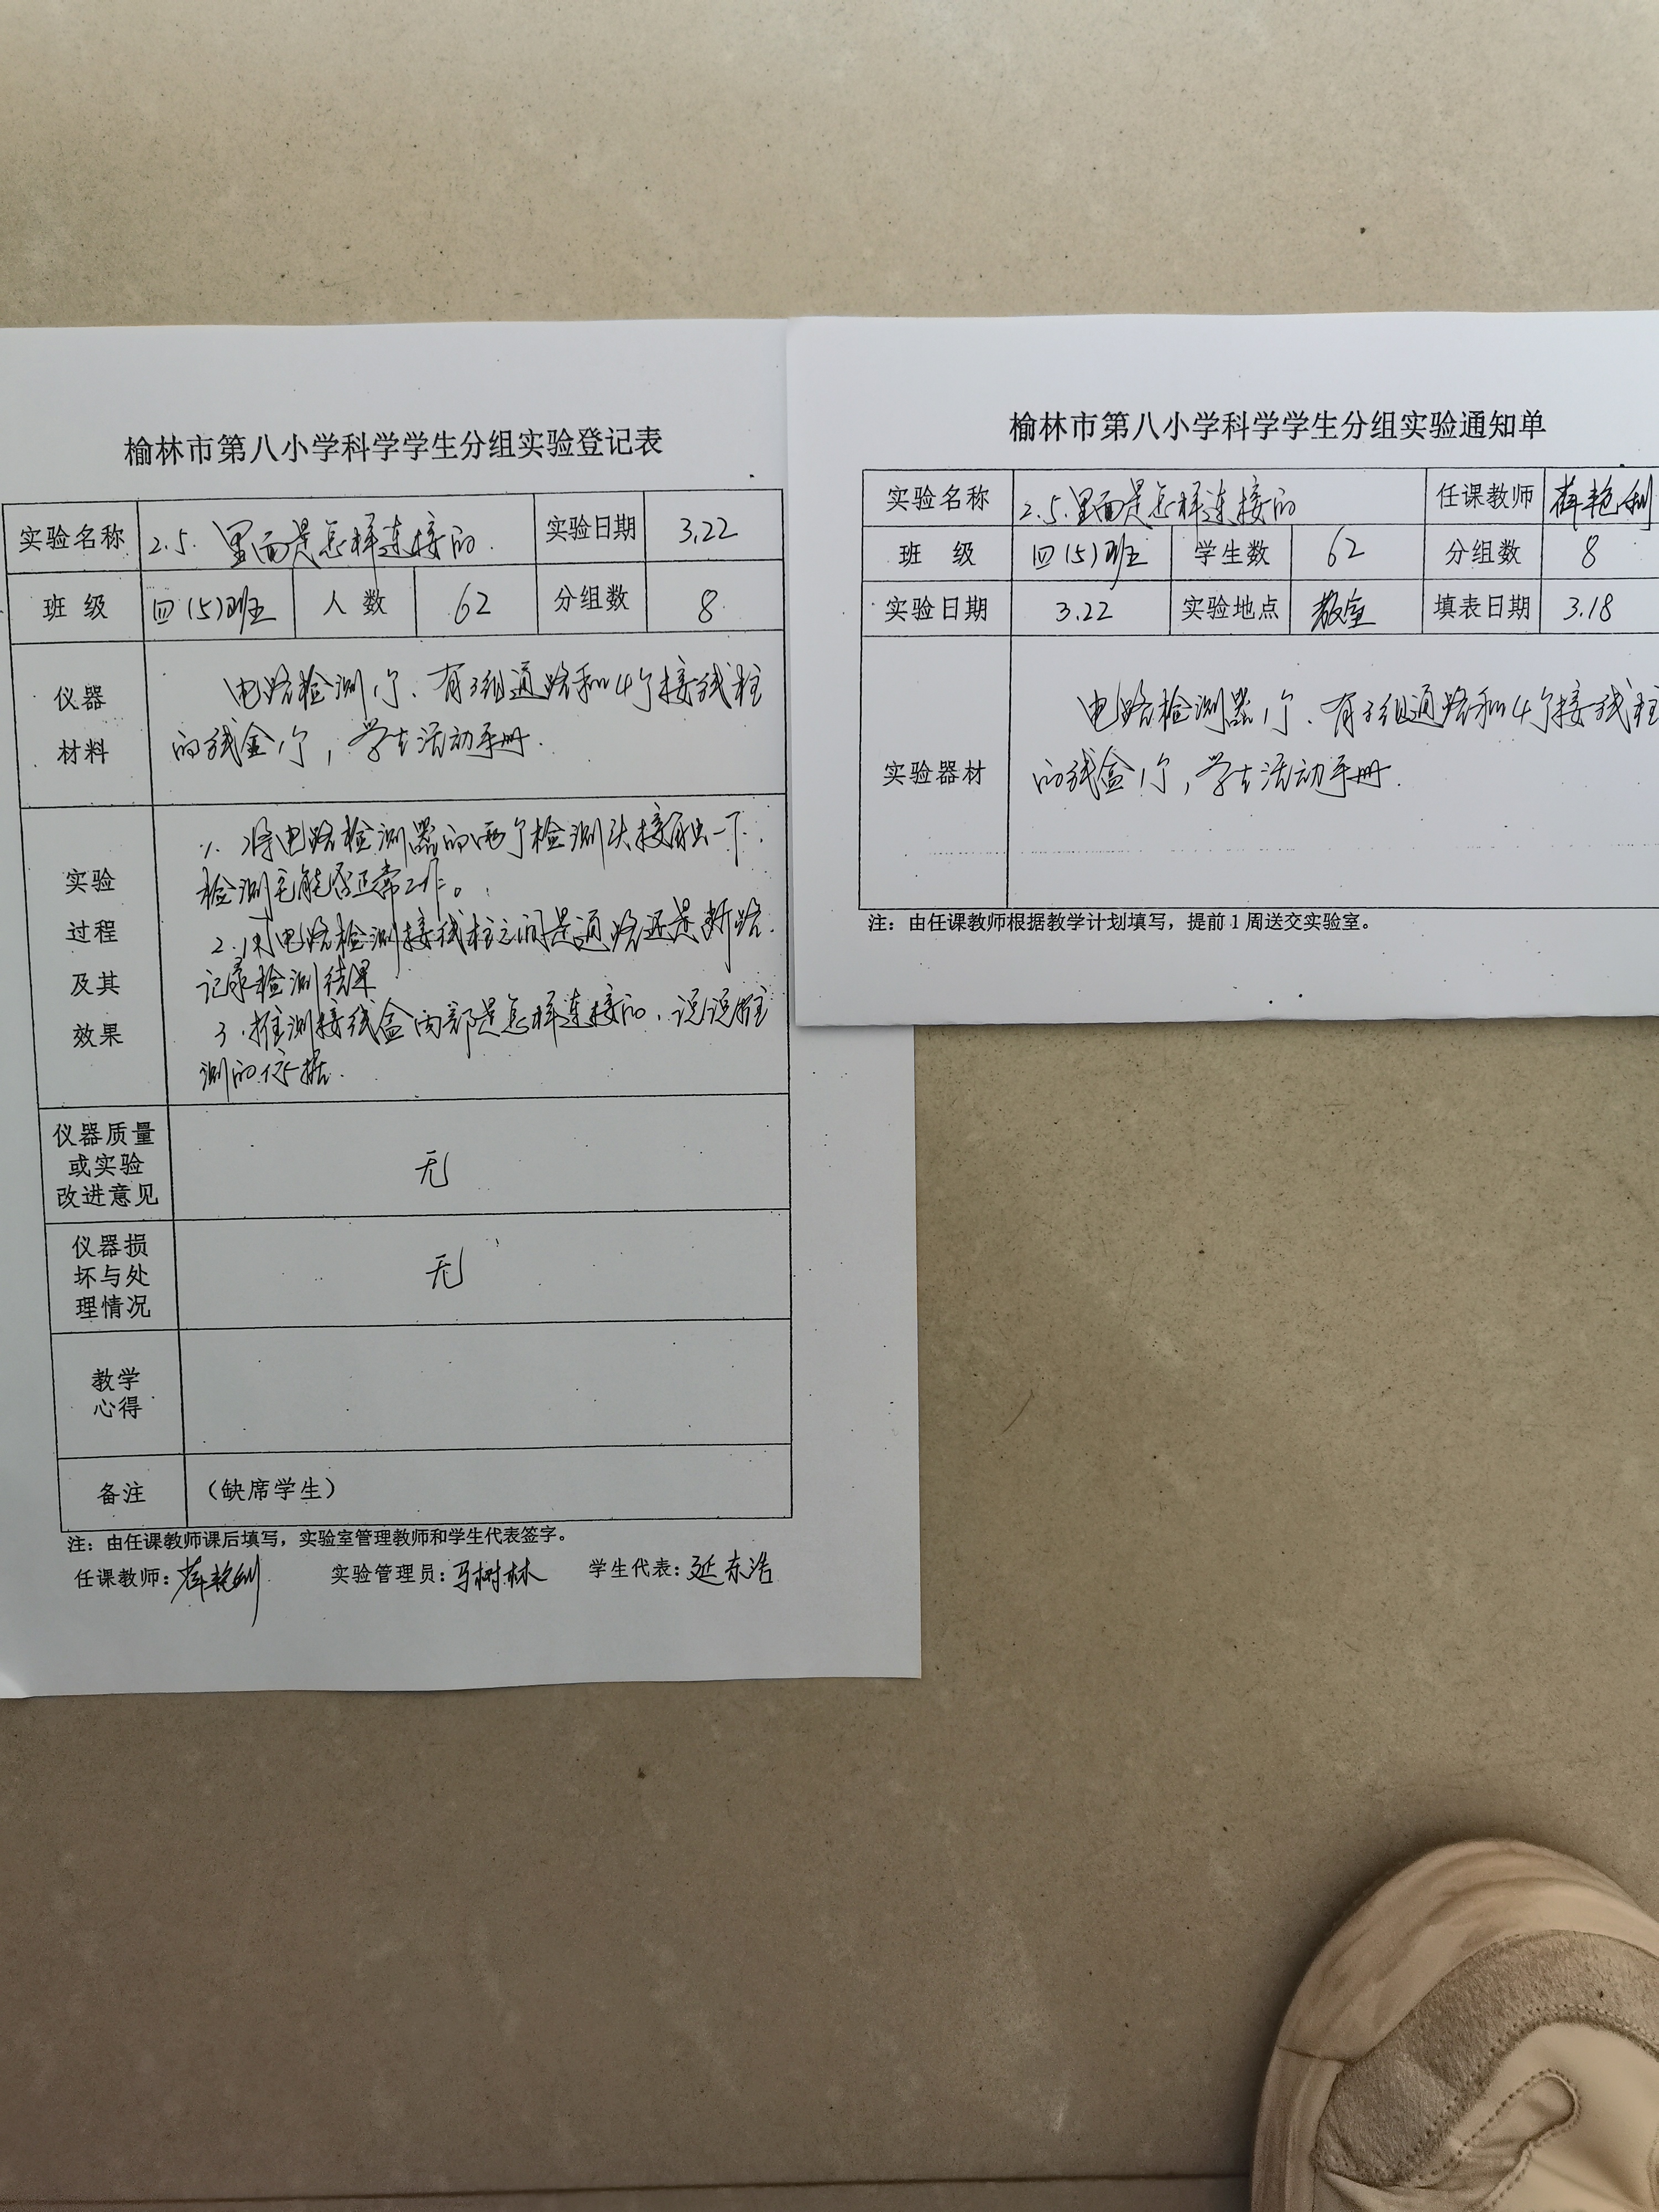 榆林市第八小学科学学生分组实验登记表
实验名称 2.5. 里面是怎样连接的. 实验日期 3.22
班 级 四(5)班 人 数 62 分组数 8
仪器 材料
电路检测1个、有3组通路和4个接线柱
的线盒1个,学生活动手册.
实验 过程 及其 效果
1. 将电路检测器的两个检测头接触一下.
检测它能否正常工作。
2.用电路检测接线柱之间是通路还是断路.
记录检测结果
3.推测接线盒内部是怎样连接的.说说推
测的依据.
仪器质量
或实验
改进意见
无
仪器损
坏与处
理情况
无
教学
心得
备注 (缺席学生)
注:由任课教师课后填写,实验室管理教师和学生代表签字。
任课教师:薛艳利 实验管理员:马树林 学生代表:延东浩
榆林市第八小学科学学生分组实验通知单
实验名称 2.5.里面是怎样连接的 任课教师 薛艳利
班 级 四(5)班 学生数 62 分组数 8
实验日期 3.22 实验地点 教室 填表日期 3.18
实验器材
电路检测器1个、有3组通路和4个接线柱
的线盒1个,学生活动手册.
注:由任课教师根据教学计划填写,提前1周送交实验室。